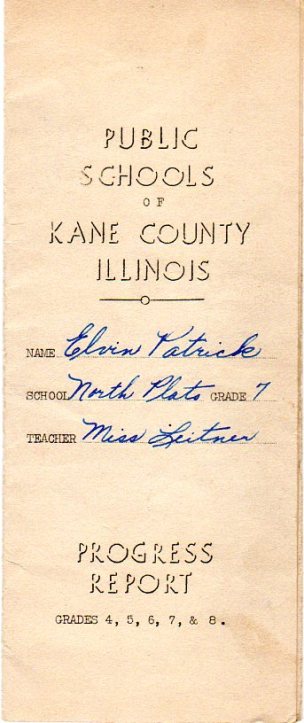 PUBLIC
SCHOOLS
OF
KANE COUNTY
ILLINOIS
NAME Elvin Patrick
SCHOOL North Plato GRADE 7
TEACHER Miss Leitner
PROGRESS
REPORT
GRADES 4, 5, 6, 7, & 8.